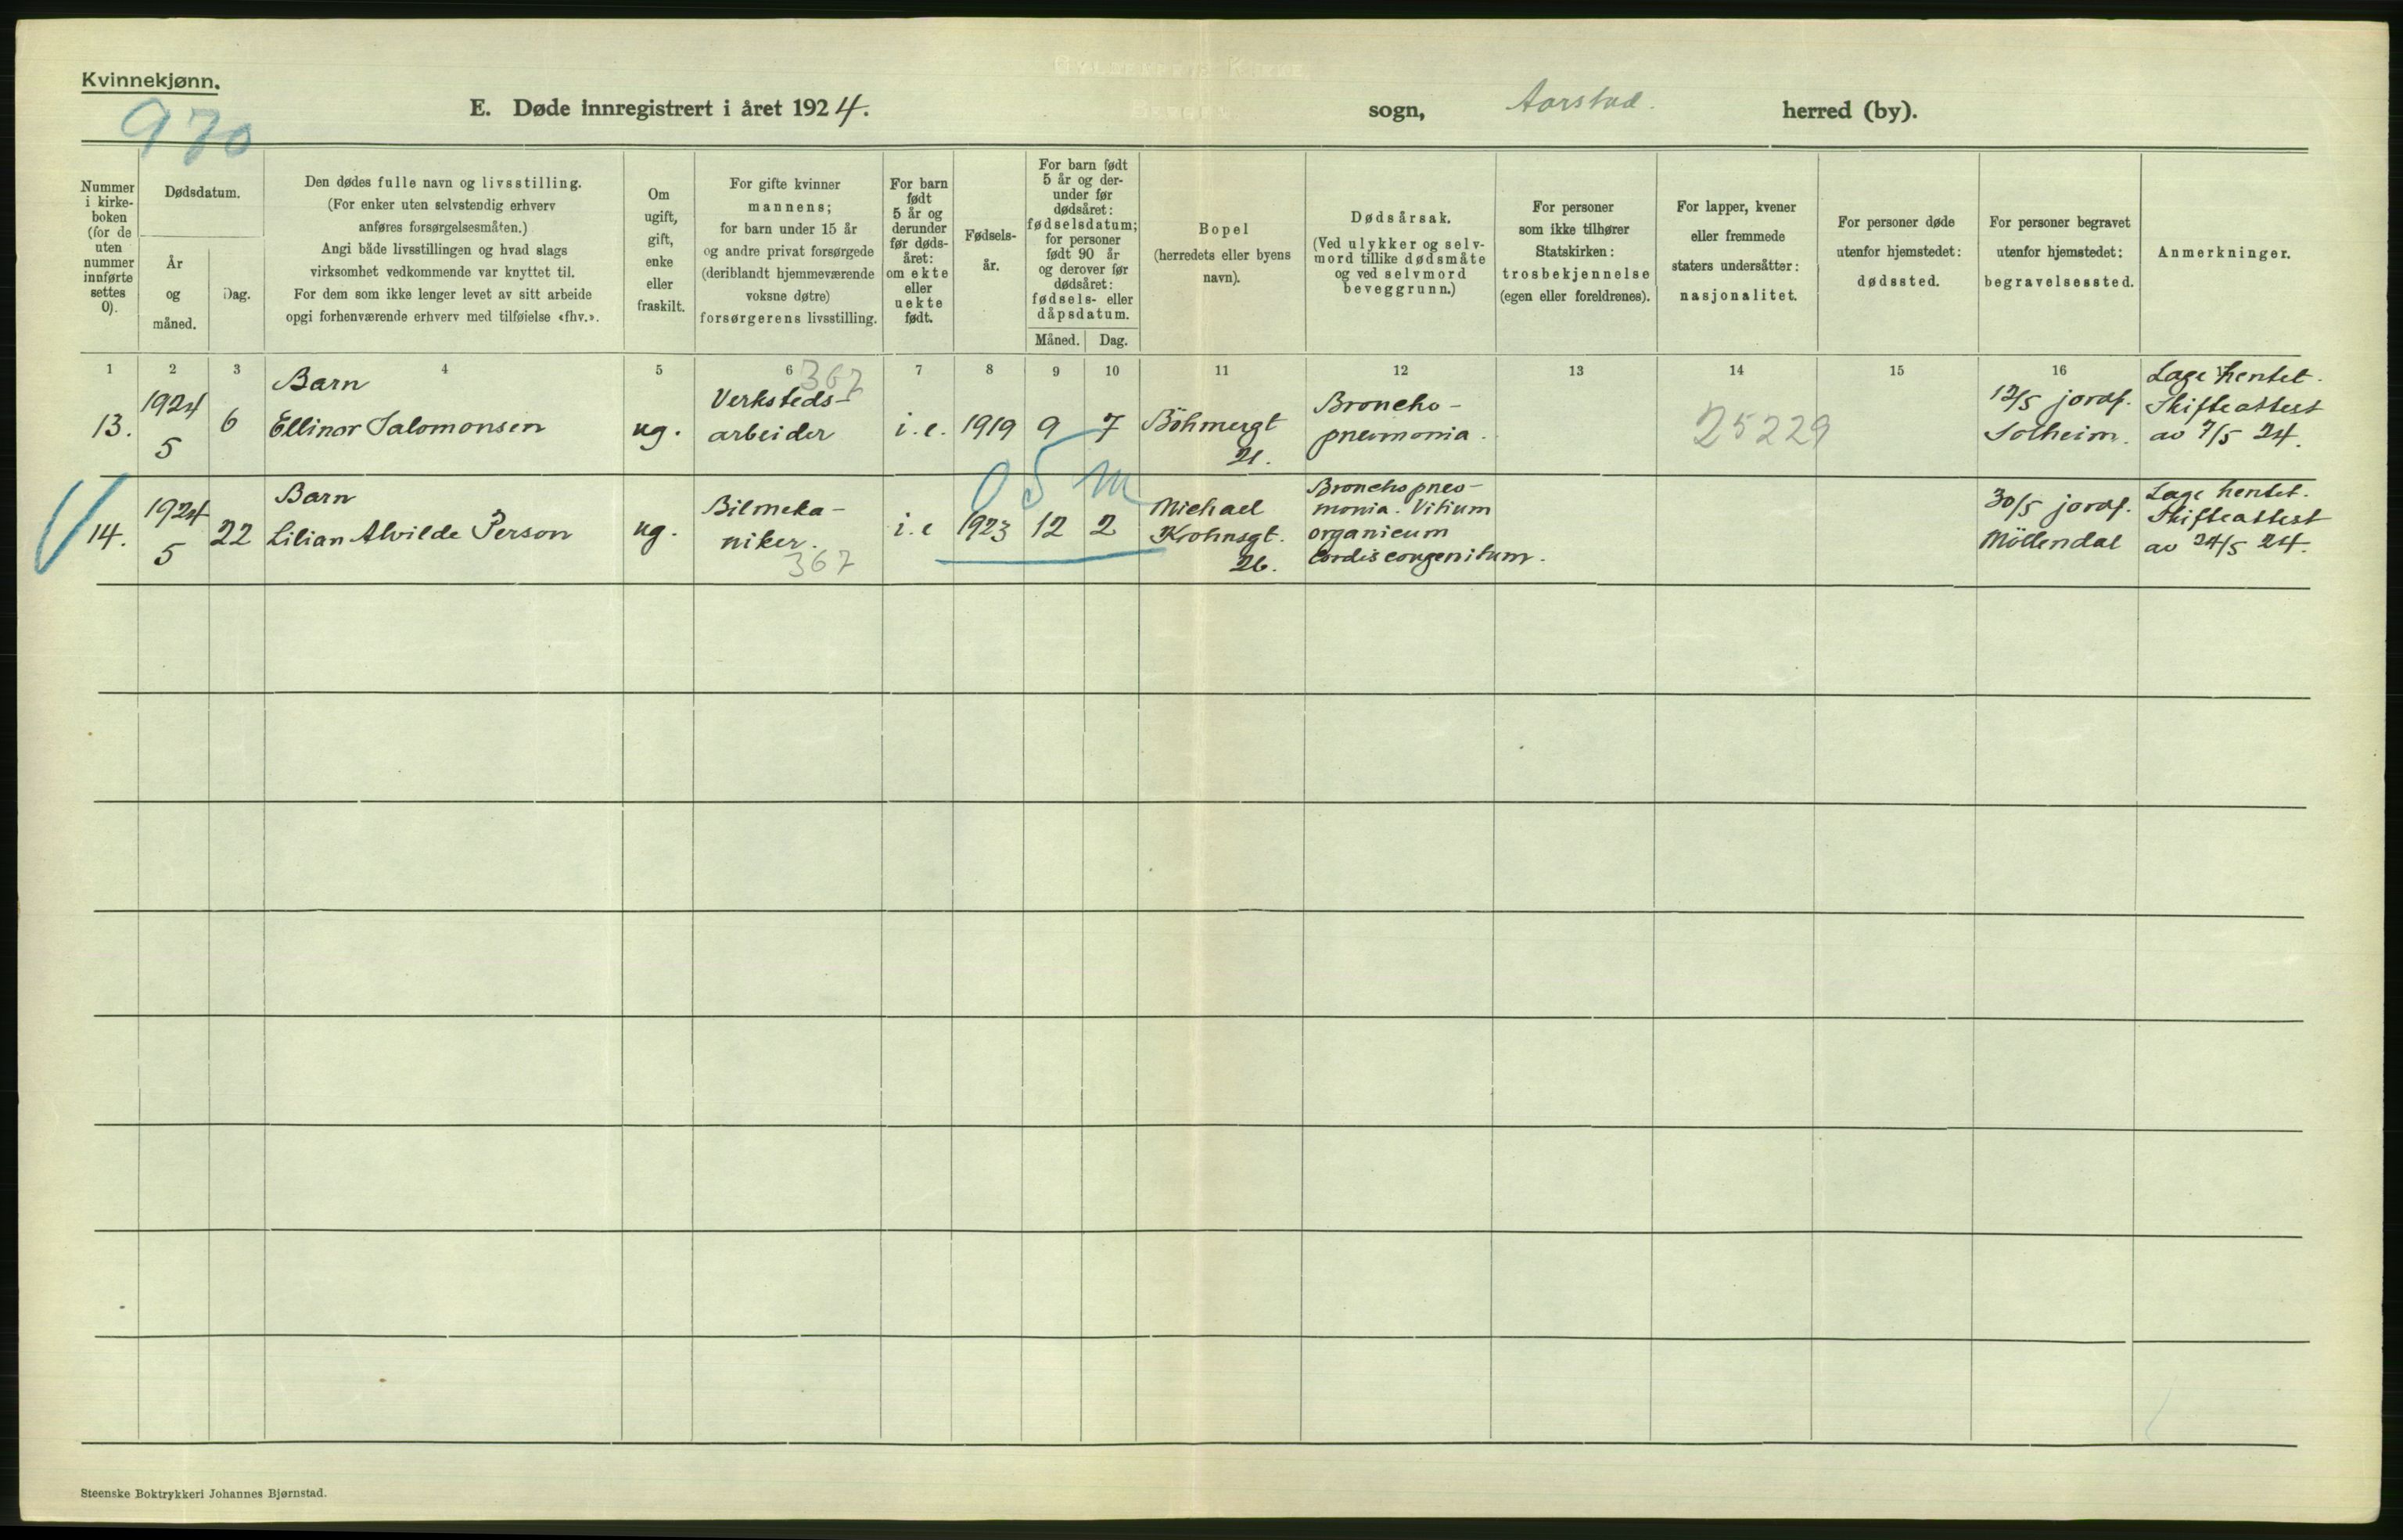 Kvinnekjønn.
970
E. Døde innregistrert i året 1924. sogn, Aarstad. herred (by).
Nummer
i kirke-
boken
(for de
uten
nummer
innførte
settes
0).
Dødsdatum.
År
og
måned.
Dag.
Den dødes fulle navn og livsstilling.
(For enker uten selvstendig erhverv
anføres forsørgelsesmåten.)
Angi både livsstillingen og hvad slags
virksomhet vedkommende var knyttet til.
For dem som ikke lenger levet av sitt arbeide
opgi forhenværende erhverv med tilføielse «fhv.».
Om
ugift,
gift,
enke
eller
fraskilt.
For gifte kvinner
mannens;
for barn under 15 år
og andre privat forsørgede
(deriblandt hjemmeværende
voksne døtre)
forsørgerens livsstilling.
For barn
født
5 år og
derunder
før døds-
året:
om ekte
eller
uekte
født.
Fødsels-
år.
For barn født
5 år og der-
under før
dødsåret:
fødselsdatum;
for personer
født 90 år
og derover før
dødsåret:
fødsels- eller
dåpsdatum.
Måned. Dag.
Bopel
(herredets eller byens
navn).
Dødsårsak.
(Ved ulykker og selv-
mord tillike dødsmåte
og ved selvmord
beveggrunn.)
For personer
som ikke tilhører
Statskirken:
trosbekjennelse
(egen eller foreldrenes).
For lapper, kvener
eller fremmede
staters undersåtter:
nasjonalitet.
For personer døde
utenfor hjemstedet:
dødssted.
For personer begravet
utenfor hjemstedet:
begravelsessted.
Anmerkninger.
1 2 3 4 5 6 7 8 9 10 11 12 13 14 15 16
13.
1924
5
6
Barn
Ellinor Salomonsen
ug.
367
Verksteds-
arbeider
i.e.
1919
9
7
Böhmergt
21.
Broncho-
pneumonia.
25229
12/5 jordf.
Solheim.
Lage hentet.
Skifteattest
av 7/5 24.
14.
1924
5
22
Barn
Lilian Alvilde Person
ug.
Bilmeka-
niker.
367
i.e
1923
12
2
05 m
Michael
Krohnsgt.
26.
Bronchopneu-
monia. Vitium
organicum
cordis congenitum.
30/5 jordf.
Möllendal
Lage hentet.
Skifteattest
av 24/5 24.
Steenske Boktrykkeri Johannes Bjørnstad.